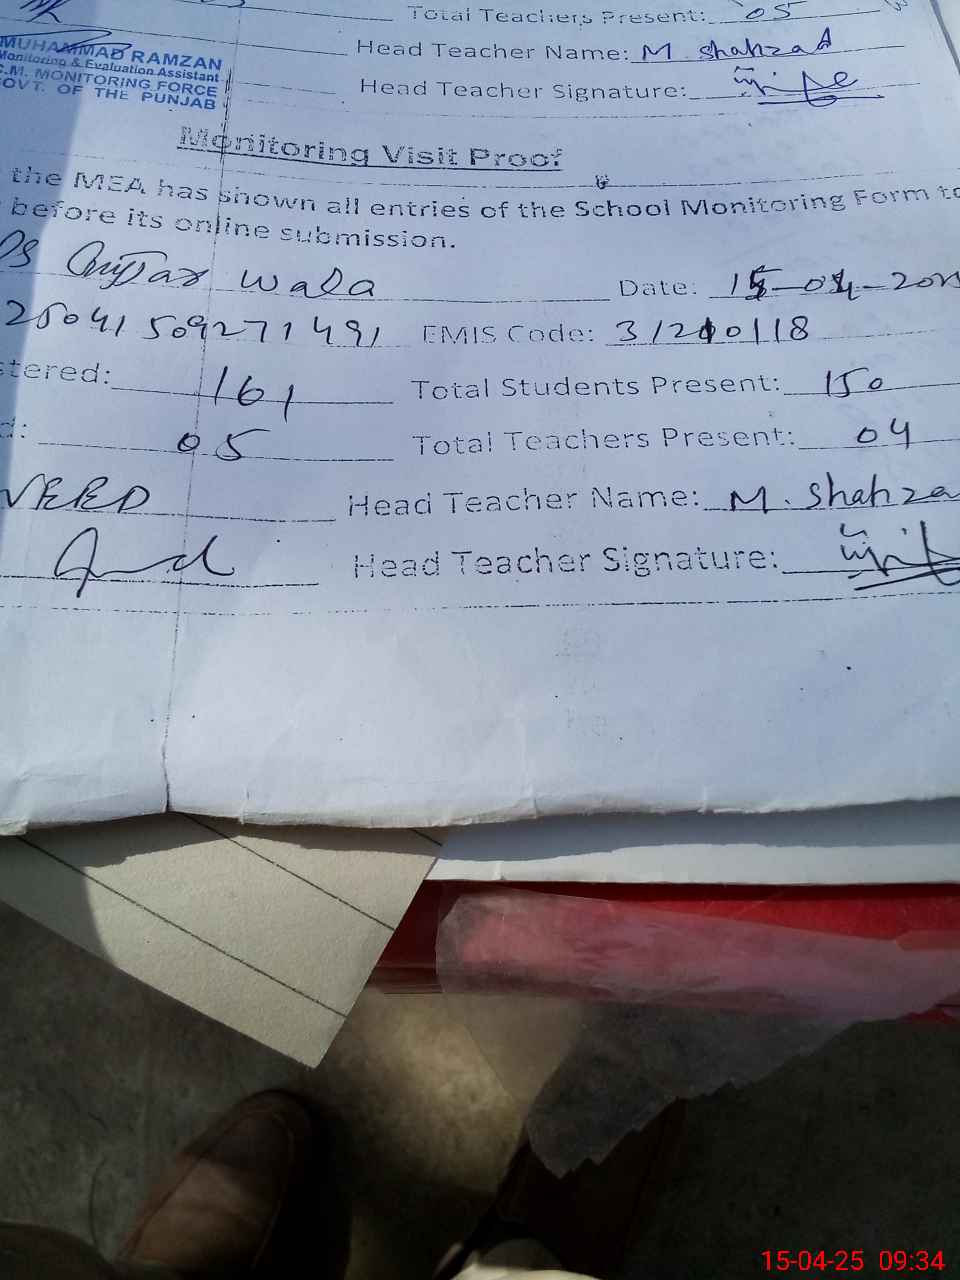 Total Teachers Present: 05
MUHAMMAD RAMZAN
Monitoring & Evaluation Assistant
C.M. MONITORING FORCE
GOVT. OF THE PUNJAB
Head Teacher Name: M. Shahzad
Head Teacher Signature:
Monitoring Visit Proof
the MEA has shown all entries of the School Monitoring Form to
before its online submission.
wala Date: 15-04-202
25041509271491 EMIS Code: 31210118
stered: 161 Total Students Present: 150
d: 05 Total Teachers Present: 04
VEED Head Teacher Name: M. Shahza
Head Teacher Signature:
15-04-25 09:34